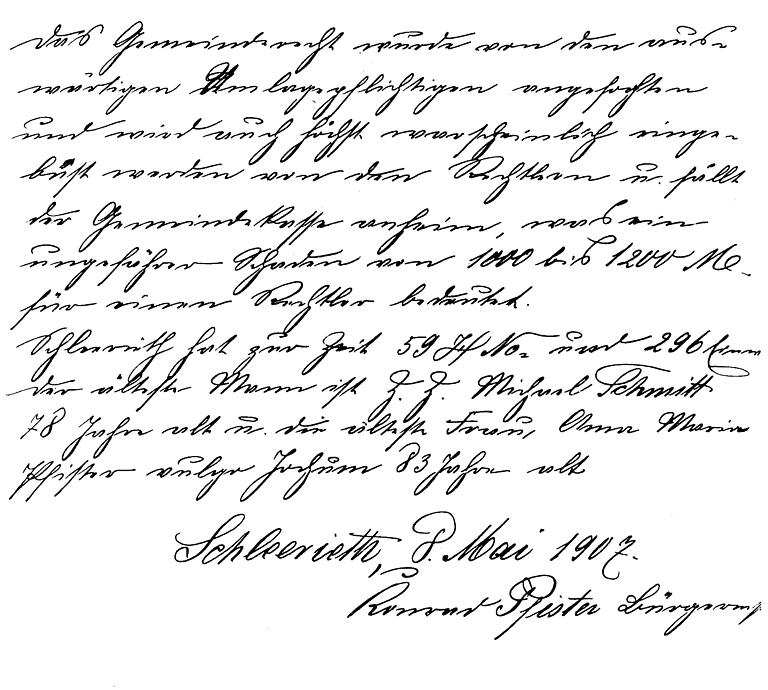 Das Gemeinderecht wurde von den aus-
wärtigen Umlagepflichtigen angefochten
und wird auch höchst warscheinlich einge-
büst werden von den Rechtlern u. fällt
der Gemeindekasse anheim, was ein
ungefährer Schaden von 1000 bis 1200 M.
für einen Rechtler bedeutet.
Schleerieth hat zur Zeit 59 Hs No. und 296 Einw
der älteste Mann ist z. Z. Michael Schmitt
78 Jahre alt u. die älteste Frau, Anna Maria
Pfister vulgo Jochum 83 Jahre alt
Schleerieth, 8. Mai 1907.
Konrad Pfister Bürgerm